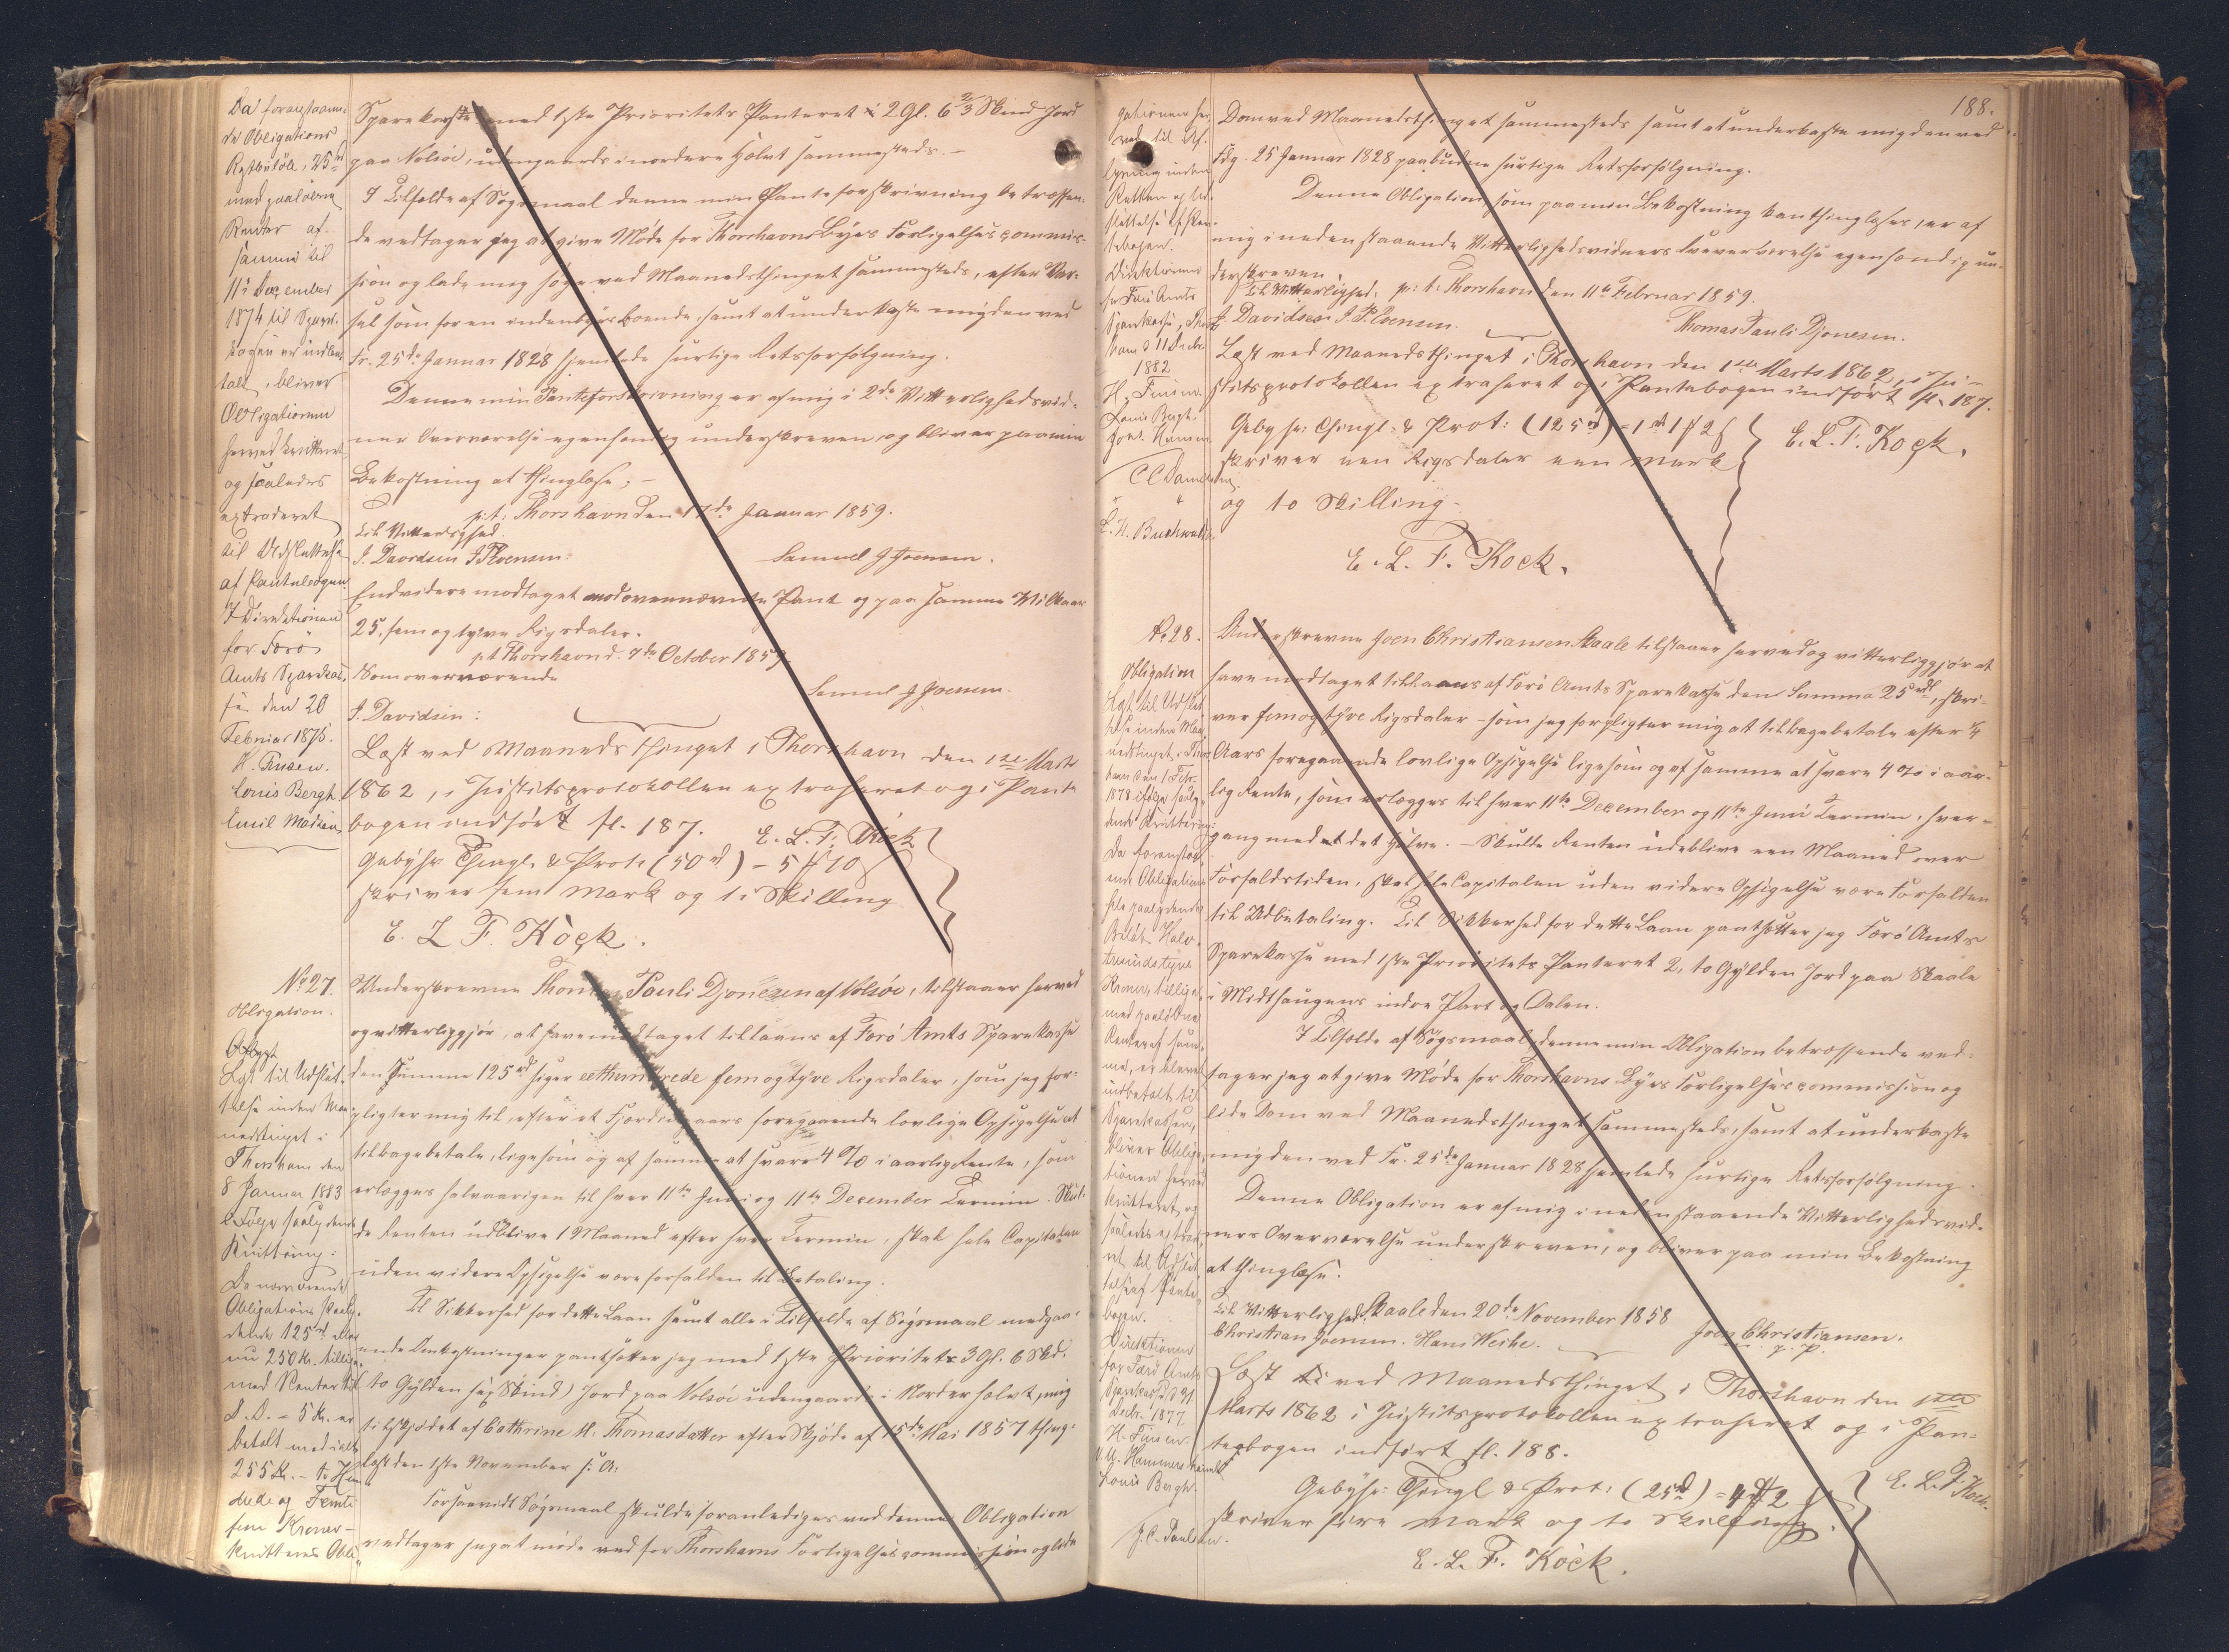 Da foranstaaen-
de Obligations
Restbeløb, 25 rd
med paaløbne
Renter af
samme til
11te December
1874 til Spare-
kassen er indbe-
talt, bliver
Obligationen
herved kvitteret
og saaledes
extraderet
til Udslettelse
af Pantebogen.
I Direktionen
for Færø
Amts Sparekas-
se den 20
Februar 1875.
H. Finsen.
Louis Bergh
Emil Madsen
Sparekasse med 1ste Prioritets Panteret i 2 Gl. 6 2/3 Skind Jord
paa Nolsöe, udengaards i nordere Halvt sammesteds. -
I Tilfælde af Søgsmaal denne min Panteforskrivning betræffen-
de vedtager jeg at give Møde for Thorshavns Byes Forligelsescommis-
sion og lade mig søge ved Maanedsthinget sammesteds, efter Var-
sel som for en indenbyes Boende, samt at underkaste mig den ved
Fr. 25de Januar 1828 hjemlede hurtige Retsforfølgning.
Denne min Panteforskrivning er af mig i 2de Vitterlighedsvid-
ners Overværelse egenhændig underskreven, og bliver paa min
Bekostning at thinglæse; -
p.t. Thorshavn den 17de Januar 1859.
Til Vitterlighed.
J. Davidsen J P Joensen. Samuel J Joensen.
Endvidere modtaget mod ovennævnte Pant og paa samme Vilkaar
25, fem og tyve Rigsdaler.
p.t. Thorshavn d. 7de October 1859.
Som overværende Samuel J Joensen.
J. Davidsen:
Læst ved Maanedsthinget i Thorshavn den 1ste Marts
1862, i Justitsprotokollen extraheret og i Pante
bogen indført fl. 187. E. L. F. Köck
Gebyhr Thingl. & Prot. (50 rd) - 5 # 10
skriver fem Mark og ti Skilling
E. L. F. Köck.
No 27.
Obligation.
Aflyst
Lyst til Udslet-
telse inden Maa-
nedstinget i
Thorshavn den
8 Januar 1883
ifølge saalydende
Kvittering:
Da nærværende
Obligations paaly-
dende 125 rd eller
nu 250 Kr. tillige
med Renter til
D. D. = 5 Kr. er
betalt med ialt
255 Kr. - to Hun-
drede og Femti
fem Kroner -
kvitteres Obli-
Underskrevne Thomas Pauli Djonesen af Nolsöe, tilstaaer herved
og vitterliggjør, at have modtaget tillaans af Færø Amts Sparekasse
den Summa 125 rd siger eethundrede femogtyve Rigsdaler, som jeg for-
pligter mig til, efter et Fjerdingaars foregaaende lovlige Opsigelse at
tilbagebetale, ligesom og af samme at svare 4 % i aarlig Rente, som
erlægges halvaarigen til hver 11te Juni og 11te December Termin. Skul-
de Renten udblive 1 Maaned efter hver Termin, skal hele Capitalen
uden videre Opsigelse være forfalden til Betaling.
Til Sikkerhed for dette Laan samt alle i Tilfælde af Søgsmaal medgaa-
ende Omkostninger pantsætter jeg med 1ste Prioritets 3 Gl. 6 Skd.
to Gylden sex Skind) Jord paa Nolsöe udengaards i Norder halvt, mig
tilskjødet af Cathrine M. Thomasdatter efter Skjøde af 15de Mai 1857 thing-
læst den 1ste November s: A.
Forsaavidt Søgsmaal skulde foranlediges ved denne Obligation
vedtager jeg at møde ved for Thorshavns Forligelsescommission og lide
188.
gationen her-
ved til Af-
lysning inden
Retten og Ud-
slettelse af Pan-
tebogen.
Direktionen
for Færø Amts
Sparekasse, Thors-
havn d 11 Decbr
1882
H. Finsen.
Louis Bergh.
C C Danielsen
L. H. Buchwaldt
Dom ved Maanedsthinget sammesteds samt at underkaste mig den ved
Fdg. 25 Januar 1828 paabudne hurtige Retsforfølgning.
Denne Obligation, som paa min Bekostning kan thinglæses, er af
mig i nedenstaaende Vitterlighedsvidners Overværelse egenhændig un-
derskreven.
Til Vitterlighed. p: t: Thorshavn den 11te Februar 1859.
J. Davidsen J. P. Joensen. Thomas Pauli Djonesen.
Læst ved Maanedsthinget i Thorshavn den 1ste Marts 1862, i Ju-
stitsprotokollen extraheret og i Pantebogen indført fl. 187.
Gebyhr: Thingl. & Prot: (125 rd) = 1 rd 1 # 2 ß E. L. F. Kock.
skriver een Rigsdaler een Mark
og to Skilling -
E. L. F. Kock.
No 28.
Obligation
Lyst til Udslet
telse inden Maa-
nedstinget i Thors
havn den 1 Febr.
1878 ifølge saaly-
dende Kvittering:
Da foranstaa-
ende Obligations
hele paalydende
Beløb Halv-
tredsindstyve
Kroner, tillige
med paaløbne
Renter af sam-
me, er blevet
indbetalt til
Sparekassen,
bliver Obliga-
tionen herved
kvitteret, og
saaledes extrade-
ret til Udslet-
telse af Pante-
bogen.
Direktionen
for Færø Amts
Sparekasse d 21
Decbr. 1877.
H. Finsen.
V. U. Hammershaimb
Louis Bergh.
J. P. Paulsen.
Underskrevne Joen Christiansen Skaale tilstaaer herved og vitterliggjør at
have modtaget tillaans af Færø Amts Sparekasse den Summa 25 rdl, skri-
ver femogtyve Rigsdaler - som jeg forpligter mig at tilbagebetale efter 1/4
Aars foregaaende lovlige Opsigelse ligesom og af samme at svare 4 % i aar-
lig Rente, som erlægges til hver 11te December og 11te Juni Termin, hver-
gang med et det Halve. - Skulde Renten udeblive een Maaned over
Forfaldstiden, skal hele Capitalen uden videre Opsigelse være forfalden
til Udbetaling. Til Sikkerhed for dette Laan pantsætter jeg Færø Amts
Sparekasse med 1ste Prioritets Panteret 2, to Gylden Jord paa Skaale
i Midthaugens indre Part og Dalen.
I Tilfælde af Søgsmaal, denne min Obligation betræffende ved-
tager jeg at give Møde for Thorshavns Byes Forligelsescommission og
lide Dom ved Maanedsthinget sammesteds, samt at underkaste
mig den ved Fr. 25de Januar 1828 hjemlede hurtige Retsforfølgning.
Denne Obligation er af mig i nedenstaaende Vitterlighedsvid-
ners Overværelse underskreven, og bliver paa min Bekostning
at thinglæse.
Til Vitterlighed. Skaale den 20de November 1858
Christian Joensen. Hans Weihe. Joen Christiansen.
m. f. P.
Læst ved Maanedsthinget i Thorshavn den 1ste
Marts 1862 i Justitsprotokollen extraheret og i Pan-
tebogen indført fl. 188.
Gebyhr: Thingl & Prot: (25 rd) = 4 # 2 ß E. L. F. Kock.
skriver fire Mark og to Skilling.
E. L. F. Köck.